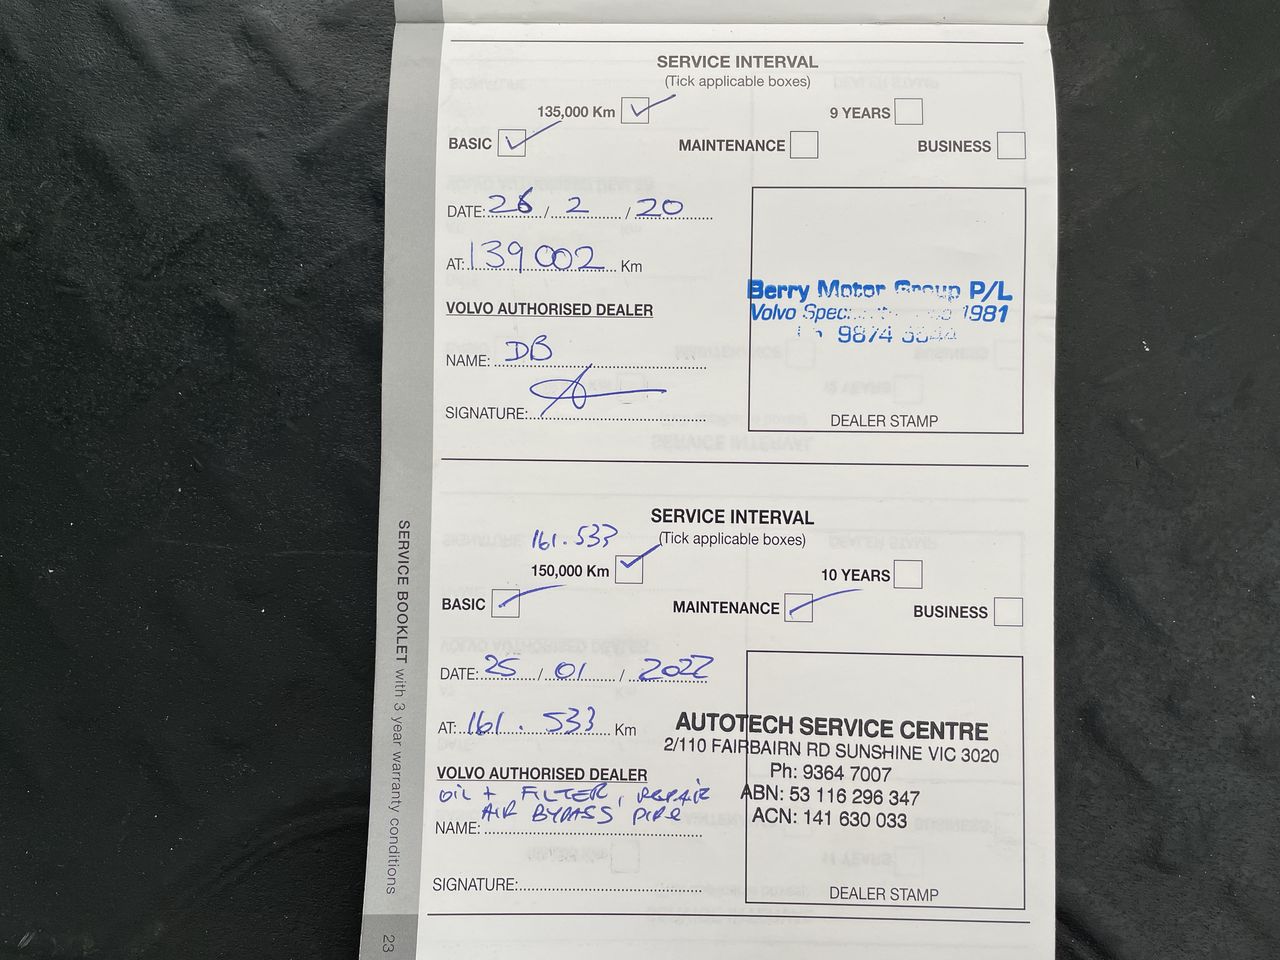 SERVICE INTERVAL
(Tick applicable boxes)
135,000 Km 9 YEARS
BASIC MAINTENANCE BUSINESS
DATE: 26 / 2 / 20
AT: 139002 Km
Berry Motor Group P/L
Volvo 1981
9874
VOLVO AUTHORISED DEALER
NAME: DB
SIGNATURE:
DEALER STAMP
SERVICE INTERVAL
161.533 (Tick applicable boxes)
150,000 Km 10 YEARS
BASIC MAINTENANCE BUSINESS
DATE: 25 / 01 / 2022
AT: 161.533 Km
AUTOTECH SERVICE CENTRE
2/110 FAIRBAIRN RD SUNSHINE VIC 3020
Ph: 9364 7007
ABN: 53 116 296 347
ACN: 141 630 033
VOLVO AUTHORISED DEALER
OIL + FILTER, REPAIR
AIR BYPASS PIPE
NAME:
SIGNATURE:
DEALER STAMP
SERVICE BOOKLET with 3 year warranty conditions
23